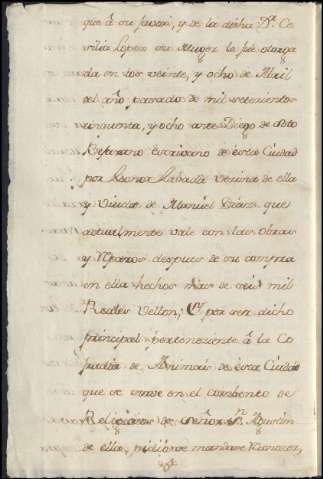 que â su favor, y de la dicha D.ª Ce
cilia Lopez su Muger le fue otorga
da en los veinte, y ocho de Abril
del año pasado de mil setecientos
cinquenta, y ocho ante Diego de Soto
Escrivano de esta Ciudad
por Leonor Vecina de ella
y Viuda de Manuel que
actualmente vale con las obras
y rreparos despues de su compra
en ella hechos mas de seis mil
Reales Vellon; Y por ser dicho
principal perteneziente â la Co
fradia de Animas de esta Ciudad
que se sirve en el Combento de
Religiosos de Señor S.n Agustin
de ella, pidiò se mandase